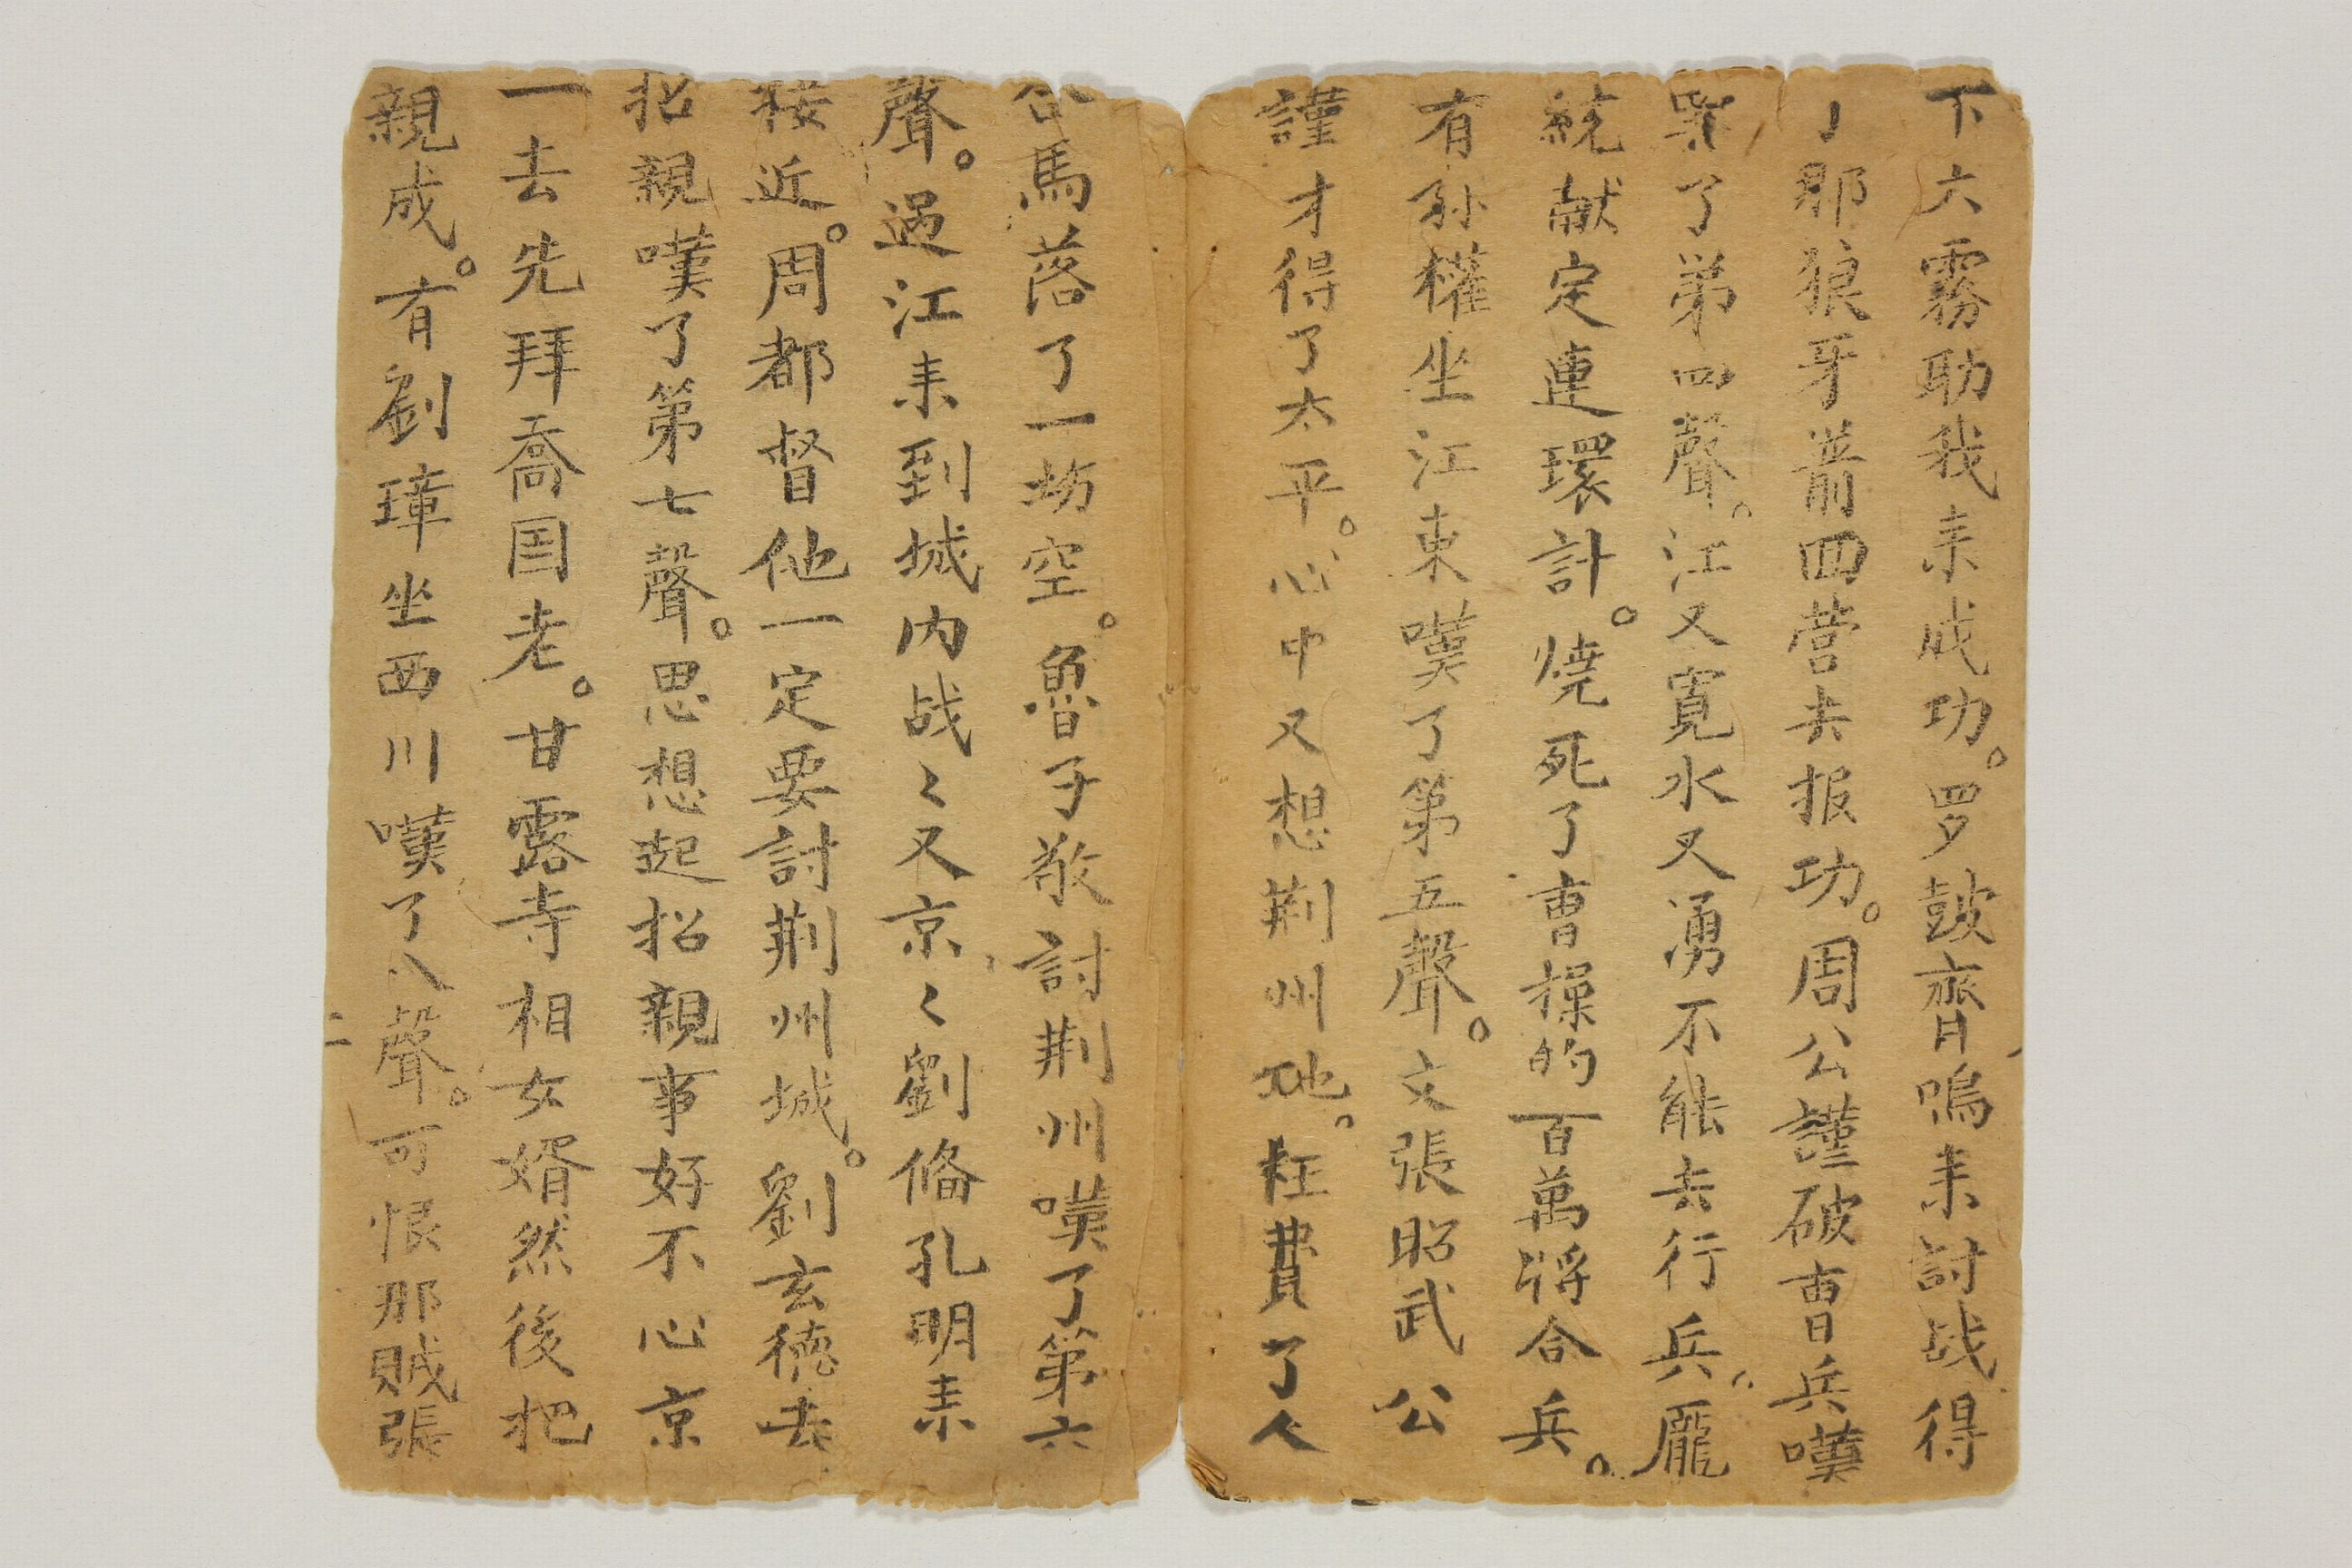 下大霧助我来成功。罗鼓齊鳴来討战得
了那狼牙箭回营去报功。周公謹破曹兵嘆
罢了弟四聲。江又寬水又湧不能去行兵。龐
統献定連環計。燒死了曹操的百萬將合兵。
有孫權坐江東嘆了第五聲。文張昭武公
謹才得了太平。心中又想荆州地。枉費了人
合馬落了一場空。魯子敬討荆州嘆了第六
聲。過江来到城内战〻又京〻劉備孔明来
接近。周都督他一定要討荆州城。劉玄德去
招親嘆了第七聲。思想起招親事好不心京
一去先拜喬国老。甘露寺相女婿然後把
親成。有劉璋坐西川嘆了八聲。可恨那贼張
二